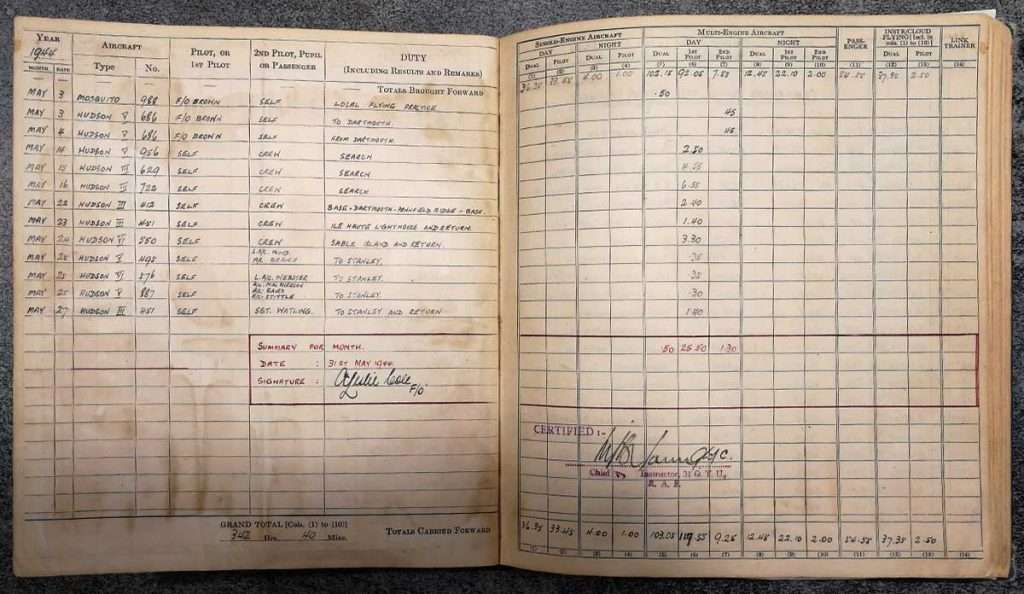 YEAR 1944 AIRCRAFT PILOT, OR 1ST PILOT 2ND PILOT, PUPIL OR PASSENGER DUTY (INCLUDING RESULTS AND REMARKS)
MONTH DATE Type No.
— — — — — — TOTALS BROUGHT FORWARD
MAY 3 MOSQUITO 988 F/O BROWN SELF LOCAL FLYING PRACTICE
MAY 3 HUDSON V 686 F/O BROWN SELF TO DARTMOUTH.
MAY 4 HUDSON V 686 F/O BROWN SELF FROM DARTMOUTH
MAY 14 HUDSON V 956 SELF CREW SEARCH
MAY 15 HUDSON 629 SELF CREW SEARCH
MAY 16 HUDSON 722 SELF CREW SEARCH
MAY 22 HUDSON III 412 SELF CREW BASE-DARTMOUTH-PENNFIELD RIDGE-BASE.
MAY 23 HUDSON III 451 SELF CREW ILE HAUTE LIGHTHOUSE AND RETURN.
MAY 24 HUDSON VI 550 SELF CREW SABLE ISLAND AND RETURN.
MAY 25 HUDSON V 495 SELF TO STANLEY.
MAY 25 HUDSON VI 576 SELF L.A/C. WEBSTER TO STANLEY.
MAY 25 HUDSON V 887 SELF TO STANLEY
MAY 27 HUDSON III 451 SELF SGT. WATLING. TO STANLEY AND RETURN
SUMMARY FOR MONTH.
DATE : 31ST MAY 1944
SIGNATURE : Leslie Cole F/O
GRAND TOTAL [Cols. (1) to (10)]
342 Hrs. 40 Mins. TOTALS CARRIED FORWARD
SINGLE-ENGINE AIRCRAFT MULTI-ENGINE AIRCRAFT PASSENGER INSTR/CLOUD FLYING [Incl. in cols. (1) to (10)] LINK TRAINER
DAY NIGHT DAY NIGHT
DUAL PILOT DUAL PILOT DUAL 1ST PILOT 2ND PILOT DUAL 1ST PILOT 2ND PILOT DUAL PILOT
(1) (2) (3) (4) (5) (6) (7) (8) (9) (10) (11) (12) (13) (14)
36.35 33.45 4.00 1.00 102.15 92.05 7.55 12.45 22.10 2.00 54.55 37.35 2.50
.50
.45
.45
2.50
6.55
2.40
1.40
3.30
.35
.35
.30
1.40
.50 25.50 1.30
CERTIFIED :-
Chief Instructor, 31 O. T. U.,
R. A. F.
36.35 33.45 4.00 1.00 103.05 117.55 9.25 12.45 22.10 2.00 54.55 37.35 2.50
(1) (2) (3) (4) (5) (6) (7) (8) (9) (10) (11) (12) (13) (14)